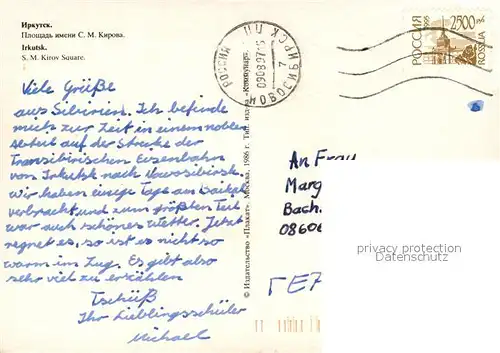 Иркутск.
Площадь имени С. М. Кирова.
Irkutsk.
S. M. Kirov Square.
Viele Grüße
aus Sibirien. Ich befinde
mich zur Zeit in einem noblen
Abteil auf der Strecke der
Transsibirischen Eisenbahn
von Irkutsk nach Nowosibirsk.
Wir haben einige Tage am Baikal
verbracht und zum größten Teil
war auch schönes Wetter. Jetzt
regnet es, so ist es nicht so
warm im Zug. Es gibt also
sehr viel zu erzählen
Tschüß
Ihr Lieblingsschüler
Michael
© Издательство «Плакат». Москва. 1986 г. Тип. изд-ва «Коммунар».
РОССИЯ
НОВОСИБИРСК
090897
РОССИЯ 1995
2500 руб
ROSSIJA
An Frau
Marg
Bach.
08606
privacy protection
Datenschutz